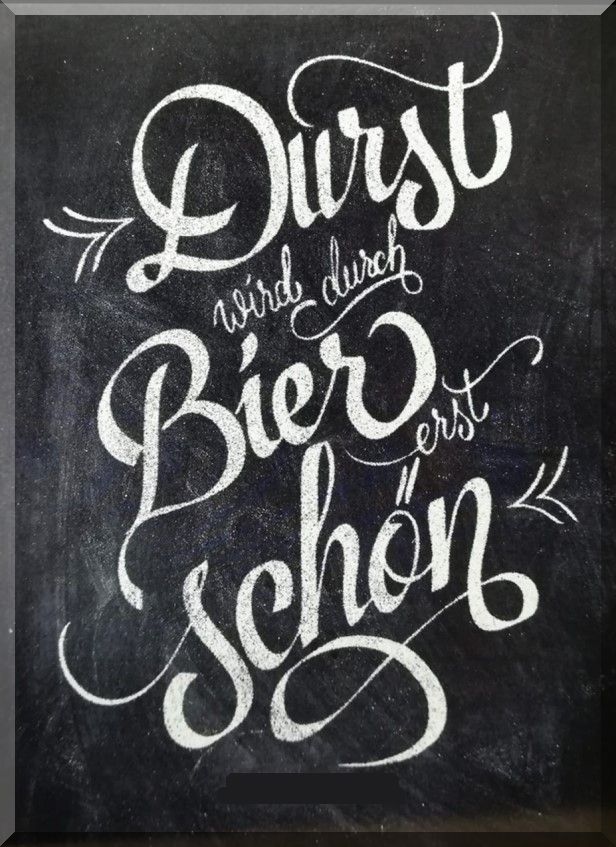 Durst
wird durch
Bier
erst
schön